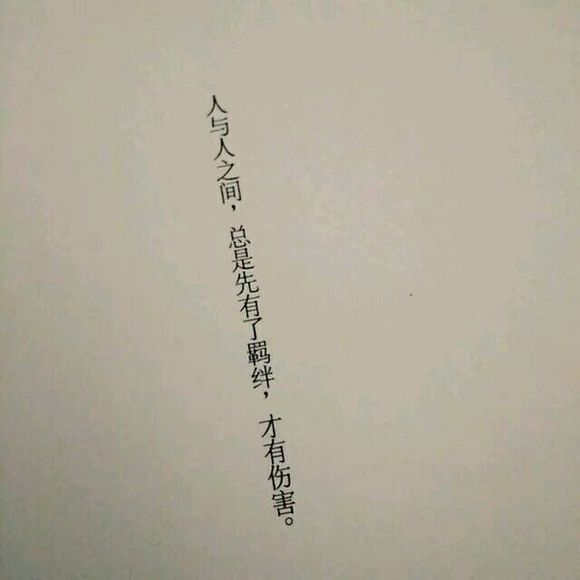 人与人之间，总是先有了羁绊，才有伤害。